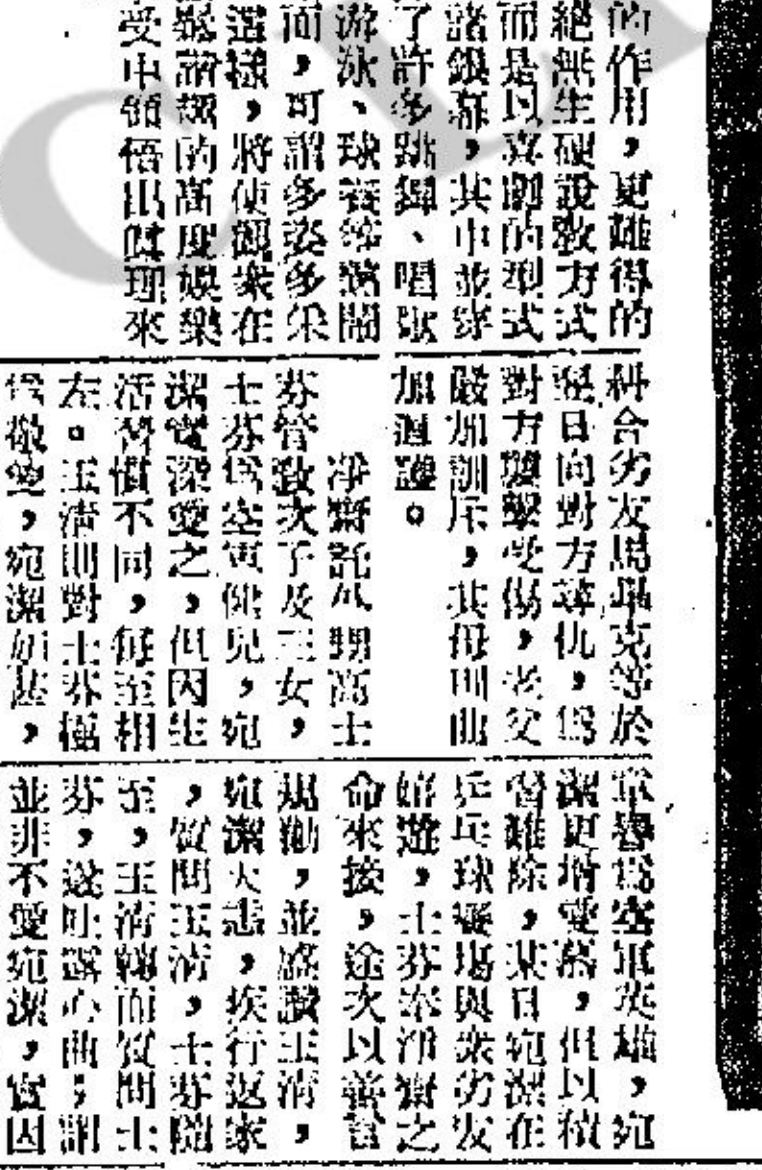 的作用，更難得的
絕無生硬說敎方式
而是以喜劇的型式
諸銀幕，其中並穿
了許多跳舞、唱歌
游泳、球賽等熱鬧
面，可謂多姿多采
這樣，將使觀衆在
謔的高度娛樂
受中領悟出眞理來
糾合劣友馬畢克等於
翌日向對方尋仇，爲
對方毆擊受傷，老父
嚴加訓斥，其母則曲
加迴護。
淨齋託其甥高士
芬管敎次子及三女，
士芬爲空軍健兒，宛
潔實深愛之，但因生
活習慣不同，每至相
左。王淸則對士芬極
爲敬愛，宛潔妒甚，
軍譽爲空軍英雄，宛
潔更增愛慕，但以積
習難除，某日宛潔在
乒乓球賽場與衆劣友
嬉遊，士芬奉淨齋之
命來接，途次以善言
規勸，並盛讚王淸，
宛潔大恚，疾行返家
，質問王淸，士芬隨
至，王淸轉而質問士
芬，遂吐露心曲；謂
並非不愛宛潔，實因